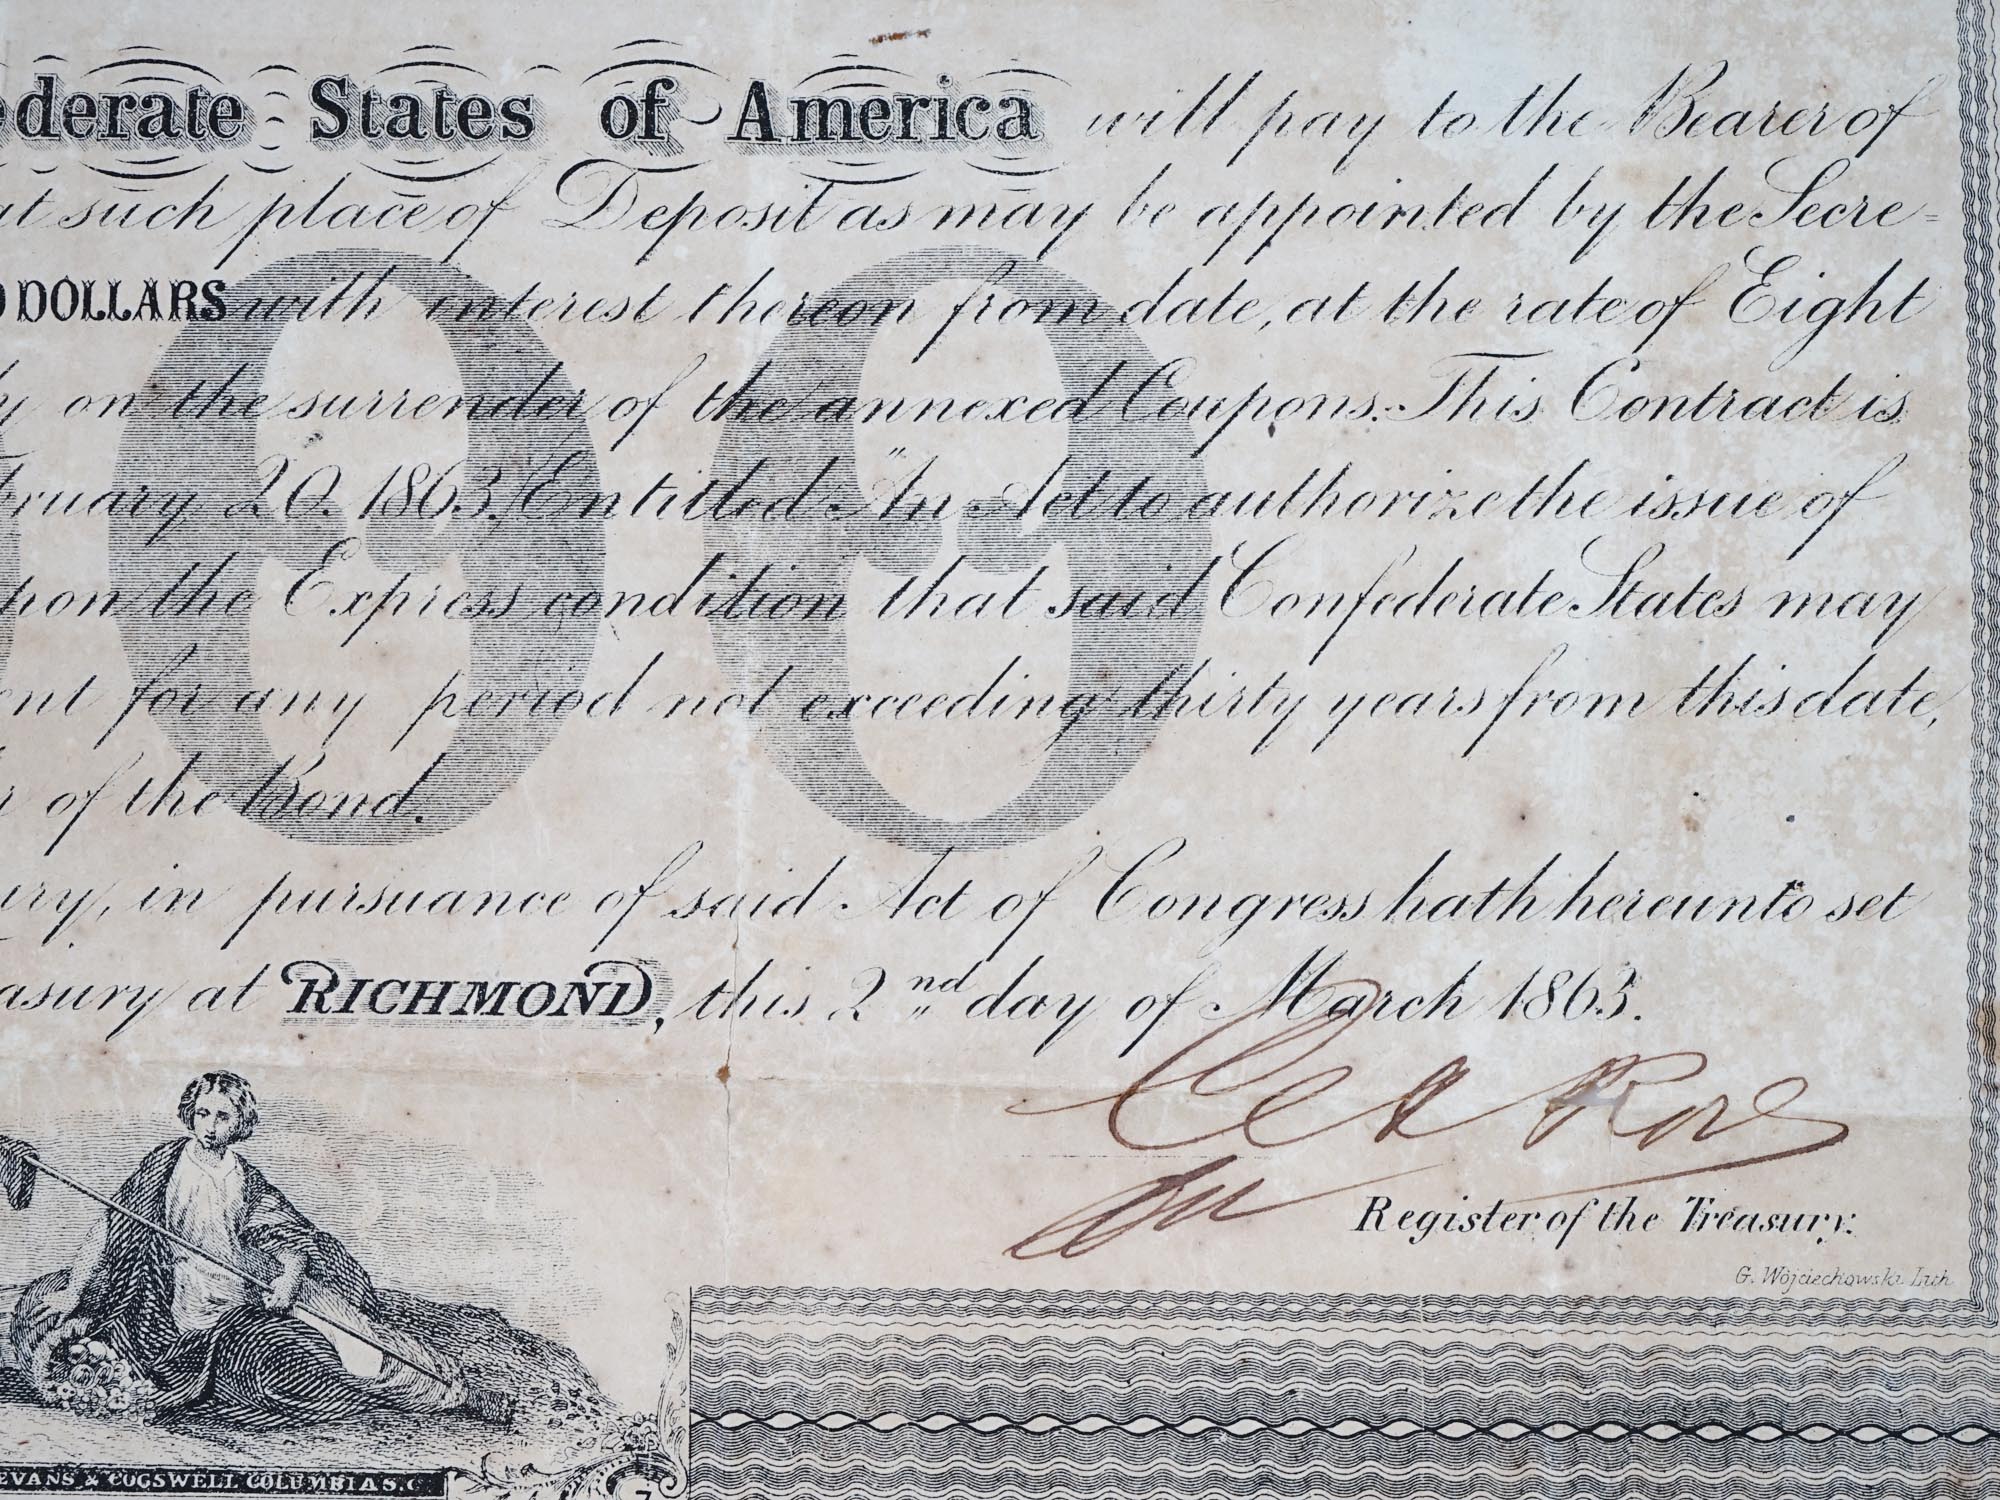 derate States of America will pay to the Bearer of
at such place of Deposit as may be appointed by the Secre=
DOLLARS with interest thereon from date, at the rate of Eight
on the surrender of the annexed Coupons. This Contract is
ruary 20. 1863, Entitled "An Act to authorize the issue of
pon the Express condition that said Confederate States may
ent for any period not exceeding thirty years from this date,
of the Bond.
ury, in pursuance of said Act of Congress hath hereunto set
asury at RICHMOND, this 2nd day of March 1863.
Register of the Treasury.
G. Wojciechowski Lith.
EVANS & COGSWELL COLUMBIA S.C.